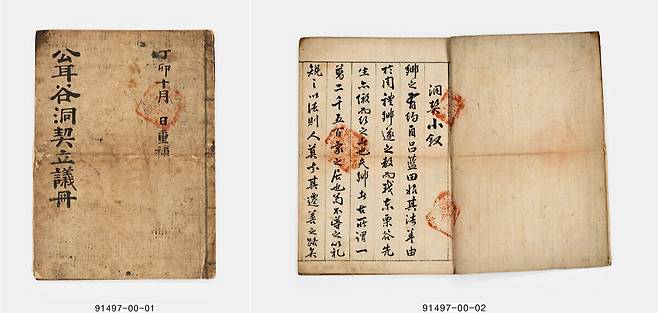 丁卯十月 日重補
公耳谷洞契立議冊
91497-00-01
洞契小叙
鄉之有約自呂藍田始其法盖由
於周禮鄉遂之教而我東栗谷先
生亦倣而行之也夫鄉者古所謂一
萬二千五百家之居也苟不導之以礼
規之以法則人莫知其遷善之路矣
91497-00-02